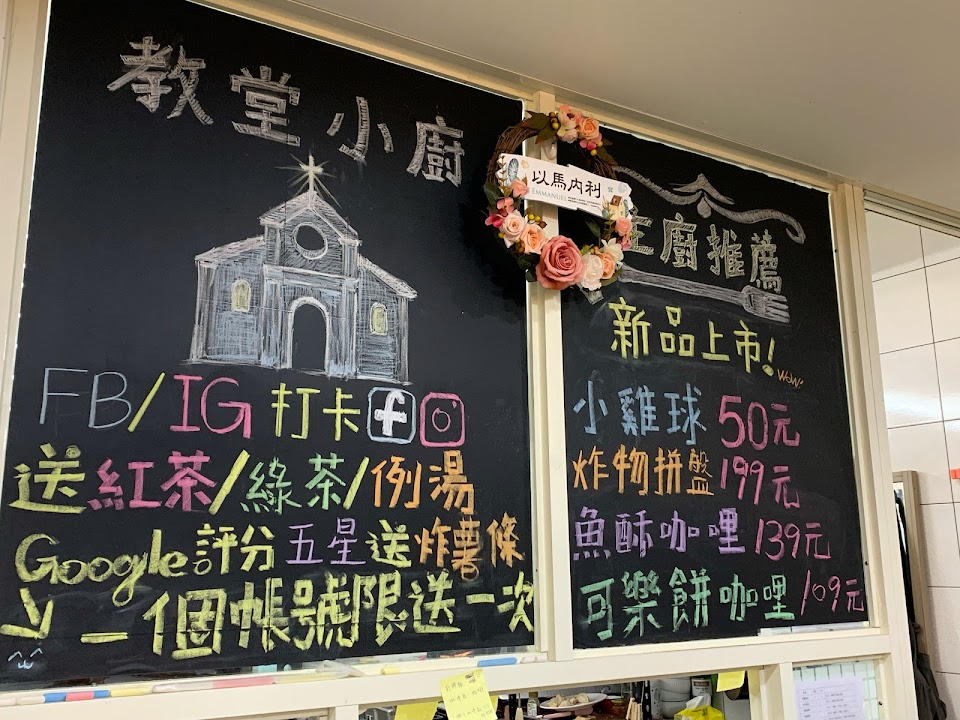 教堂小廚
FB/IG打卡
送紅茶/綠茶/例湯
Google評分五星送炸薯條
一個帳號限送一次
以馬內利
EMMANUEL
主廚推薦
新品上市!
WoW!
小雞球 50元
炸物拼盤 199元
魚酥咖哩 139元
可樂餅咖哩 109元